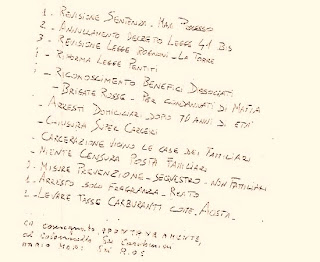 1 - REVISIONE SENTENZA - MAXI PROCESSO
2 - ANNULLAMENTO DECRETO LEGGE 41 BIS
3 - REVISIONE LEGGE ROGNONI - LA TORRE
- RIFORMA LEGGE PENTITI
- RICONOSCIMENTO BENEFICI DISSOCIATI
- BRIGATE ROSSE - PER CONDANNATI DI MAFIA
- ARRESTI DOMICILIARI DOPO 70 ANNI DI ETA'
- CHIUSURA SUPER CARCERI
- CARCERAZIONE VICINO LE CASE DEI FAMILIARI
- NIENTE CENSURA POSTA FAMILIARI
- MISURE PREVENZIONE - SEQUESTRO - NON FAMILIARI
- ARRESTO SOLO FRAGRANZA - REATO
- LEVARE TASSE CARBURANTI COME AOSTA